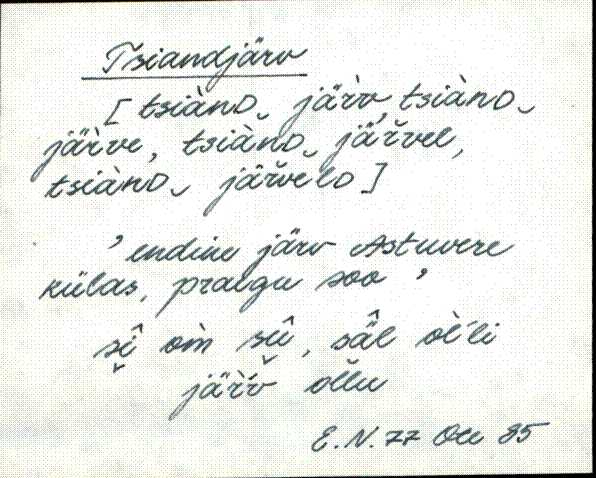 Tsiandjärv
[tsiànᴅ‿ järv̀, tsiànᴅ‿
järv̀e, tsiànᴅ‿ järv̆el,
tsiànᴅ‿ järv̆elᴅ]
’endine järv Astuvere
külas, praegu soo’
sî om̀ sû, säl̂ oĺ̀li
järv̀ ol̆lu
E.N. 77 Ote 85